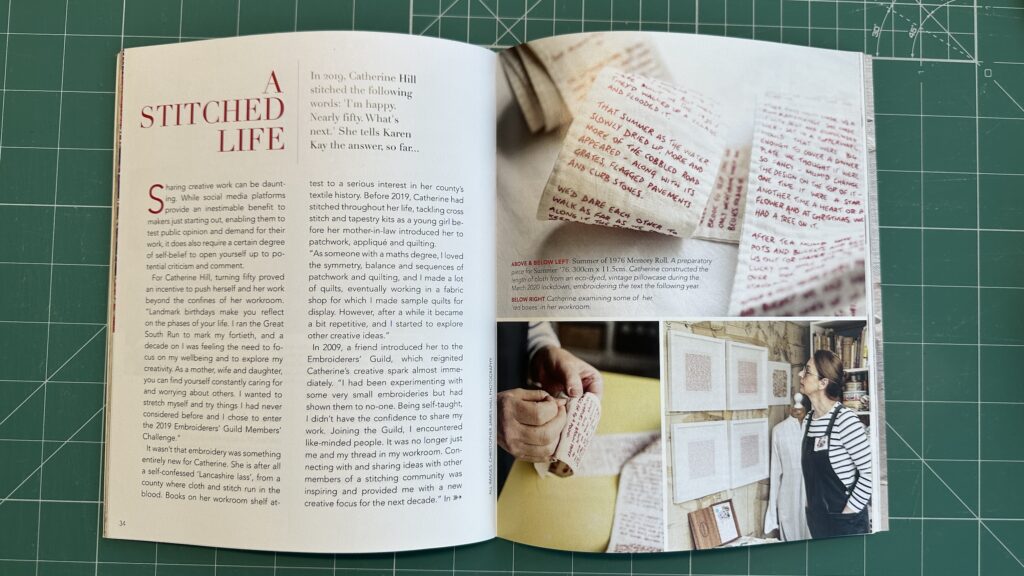 A
STITCHED
LIFE
In 2019, Catherine Hill
stitched the following
words: 'I'm happy.
Nearly fifty. What's
next.' She tells Karen
Kay the answer, so far...
Sharing creative work can be daunt-
ing. While social media platforms
provide an inestimable benefit to
makers just starting out, enabling them to
test public opinion and demand for their
work, it does also require a certain degree
of self-belief to open yourself up to po-
tential criticism and comment.
For Catherine Hill, turning fifty proved
an incentive to push herself and her work
beyond the confines of her workroom.
"Landmark birthdays make you reflect
on the phases of your life. I ran the Great
South Run to mark my fortieth, and a
decade on I was feeling the need to fo-
cus on my wellbeing and to explore my
creativity. As a mother, wife and daughter,
you can find yourself constantly caring for
and worrying about others. I wanted to
stretch myself and try things I had never
considered before and I chose to enter
the 2019 Embroiderers' Guild Members'
Challenge."
It wasn't that embroidery was something
entirely new for Catherine. She is after all
a self-confessed 'Lancashire lass', from a
county where cloth and stitch run in the
blood. Books on her workroom shelf at-
34
test to a serious interest in her county's
textile history. Before 2019, Catherine had
stitched throughout her life, tackling cross
stitch and tapestry kits as a young girl be-
fore her mother-in-law introduced her to
patchwork, appliqué and quilting.
"As someone with a maths degree, I loved
the symmetry, balance and sequences of
patchwork and quilting, and I made a lot
of quilts, eventually working in a fabric
shop for which I made sample quilts for
display. However, after a while it became
a bit repetitive, and I started to explore
other creative ideas."
In 2009, a friend introduced her to the
Embroiderers' Guild, which reignited
Catherine's creative spark almost imme-
diately. "I had been experimenting with
some very small embroideries but had
shown them to no-one. Being self-taught,
I didn't have the confidence to share my
work. Joining the Guild, I encountered
like-minded people. It was no longer just
me and my thread in my workroom. Con-
necting with and sharing ideas with other
members of a stitching community was
inspiring and provided me with a new
creative focus for the next decade." In
ALL IMAGES: CHRISTOPHER JAMES HALL PHOTOGRAPHY
AND FLOODED IT.
THAT SUMMER AS THE WATER
SLOWLY DRIED UP MORE AND
MORE OF THE COBBLED ROAD
APPEARED - ALONG WITH ITS
GRATES, FLAGGED PAVEMENTS
AND CURB STONES.
WE'D DARE EACH OTHER TO
WALK AS FAR AS
ENOUGH TO COVER A DINNER
PLATE WE THOUGHT IT WAS
SO FANCY - MUM'D CHANGE
THE DESIGN ON THE TOP OF IT -
ONE TIME IT WERE A STAR
ANOTHER TIME A HEART OR A
FLOWER AND AT CHRISTMAS WE
HAD A TREE ON IT.
AFTER TEA
POTS AND
ABOVE & BELOW LEFT Summer of 1976 Memory Roll. A preparatory
piece for Summer '76. 300cm x 11.5cm. Catherine constructed the
length of cloth from an eco-dyed, vintage pillowcase during the
March 2020 lockdown, embroidering the text the following year.
BELOW RIGHT Catherine examining some of her
'red boxes' in her workroom.